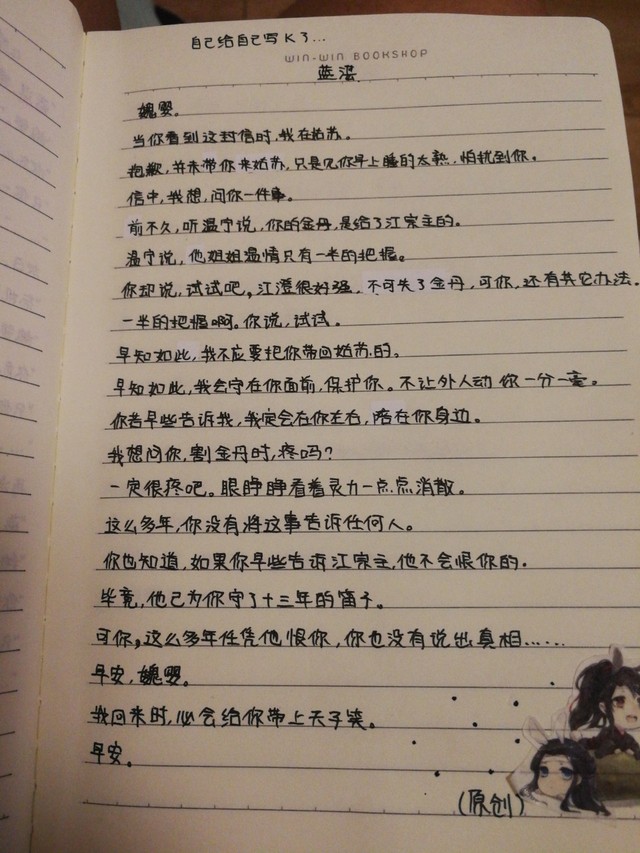 自己给自己写K了...
WIN-WIN BOOKSHOP
蓝湛
魏婴。
当你看到这封信时，我在姑苏。
抱歉，并未带你来姑苏，只是见你早上睡的太熟，怕扰到你。
信中，我想，问你一件事。
前不久，听温宁说，你的金丹，是给了江宗主的。
温宁说，他姐姐温情只有一半的把握。
你却说，试试吧，江澄很好强，不可失了金丹，可你，还有其它办法。
一半的把握啊。你说，试试。
早知如此，我不应要把你带回姑苏的。
早知如此，我会守在你面前，保护你。不让外人动你一分一毫。
你若早些告诉我，我定会在你左右，陪在你身边。
我想问你，割金丹时，疼吗？
一定很疼吧。眼睁睁看着灵力一点点消散。
这么多年，你没有将这事告诉任何人。
你也知道，如果你早些告诉江宗主，他不会恨你的。
毕竟，他已为你守了十三年的笛子。
可你，这么多年任凭他恨你，你也没有说出真相……
早安，魏婴。
我回来时，必会给你带上天子笑。
早安。
(原创)